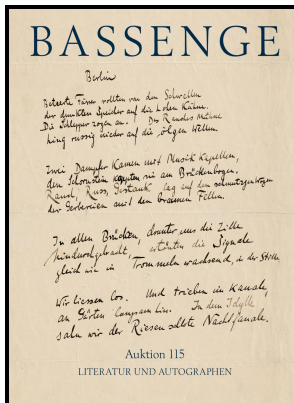 BASSENGE
Berlin
Beteerte Fässer rollten von den Schwellen
der dunklen Speicher auf die hohen Kähne.
Die Schlepper zogen an. Des Rauches Mähne
hing russig nieder auf die öligen Wellen.
Zwei Dampfer kamen mit Musikkapellen,
den Schornstein kappten sie am Brückenbogen.
Rauch, Russ, Gestank lag auf den schmutzigen Wogen
der Gerbereien mit den braunen Fellen.
In allen Brücken, drunter uns die Zille
hindurchgebracht, ertönten die Signale
gleich wie in Trommeln wachsend, in der Stille
Wir liessen los. Und trieben im Kanale,
an Gärten langsam hin. In dem Idylle
sahn wir der Riesenschlote Nachtfanale.
Auktion 115
LITERATUR UND AUTOGRAPHEN